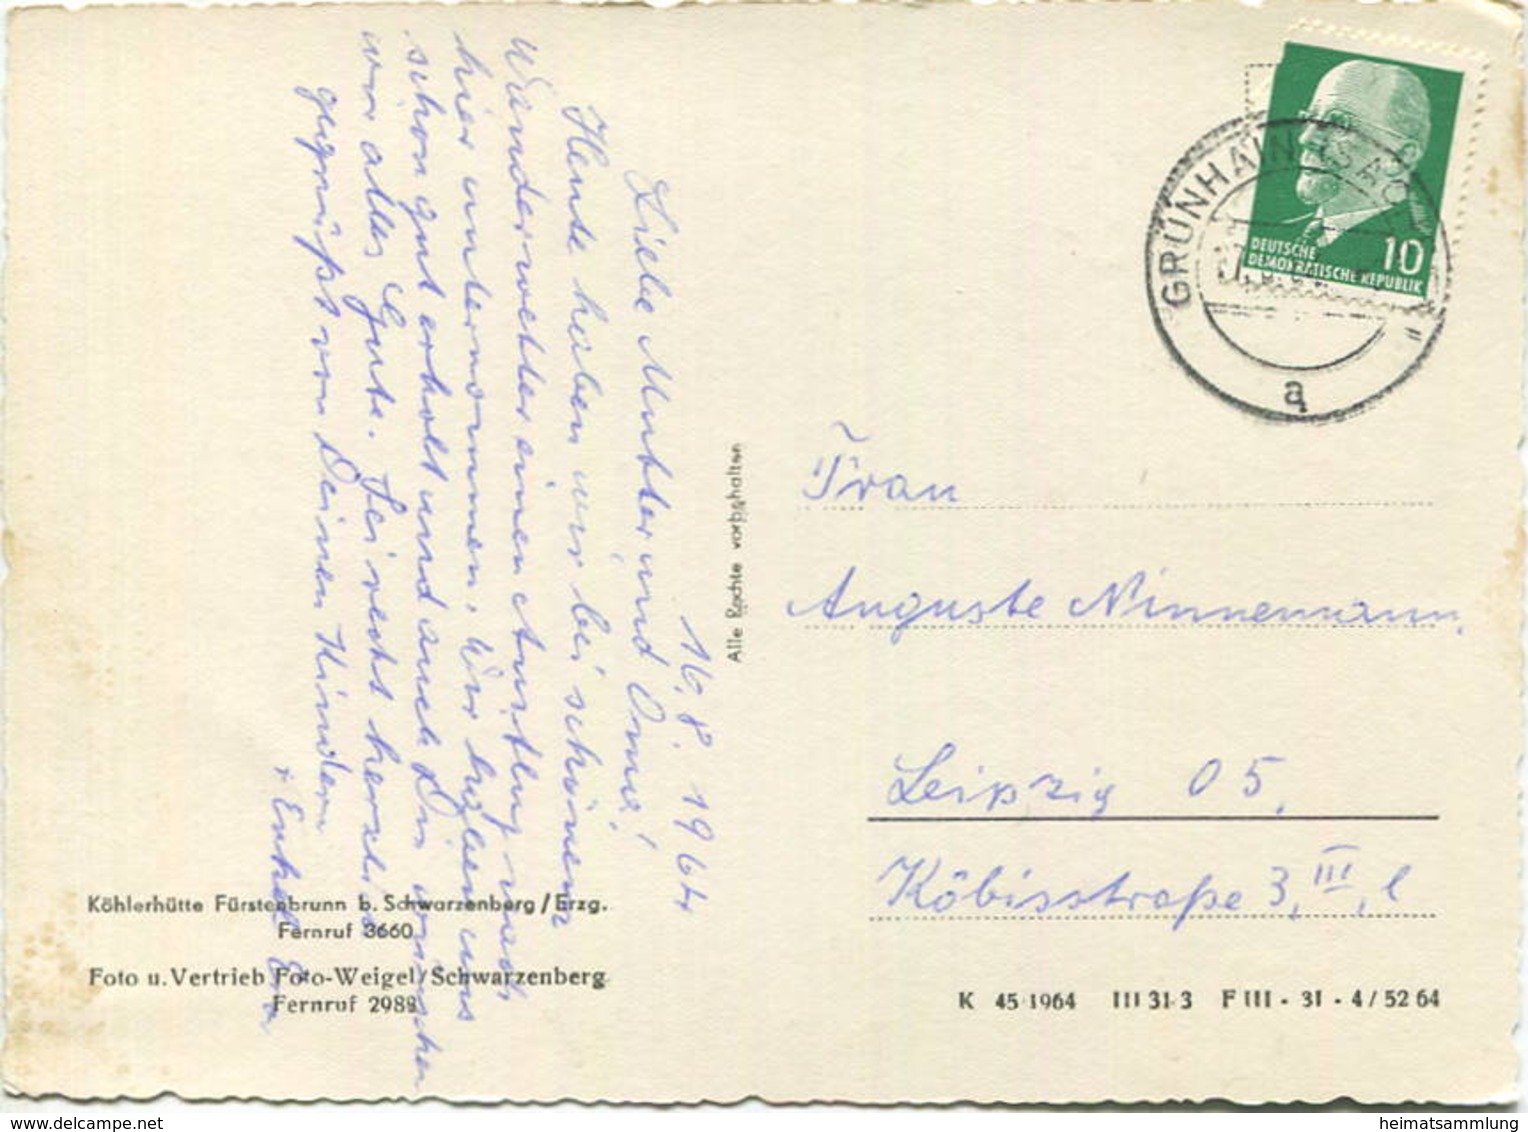 16. 8. 1964
Liebe Mutter und Omi!
Heute haben wir bei schönem
Wanderwetter einen Ausflug nach
hier unternommen. Wir haben uns
schon gut erholt und auch Dir wünschen
wir alles Gute. Sei recht herzlich
gegrüßt von Deinen Kindern
+ Enkel
Alle Rechte vorbehalten
Köhlerhütte Fürstenbrunn b. Schwarzenberg/Erzg.
Fernruf 3660
Foto u. Vertrieb Foto-Weigel/Schwarzenberg
Fernruf 2988
GRÜNHAIN (SACHS)
a
10
DEUTSCHE
DEMOKRATISCHE REPUBLIK
Frau
Auguste Ninnemann,
Leipzig O 5,
Köbisstraße 3, III, l
K 45 1964 III 31-3 F III - 31 - 4 / 52 64
delcampe.net
heimatsammlung